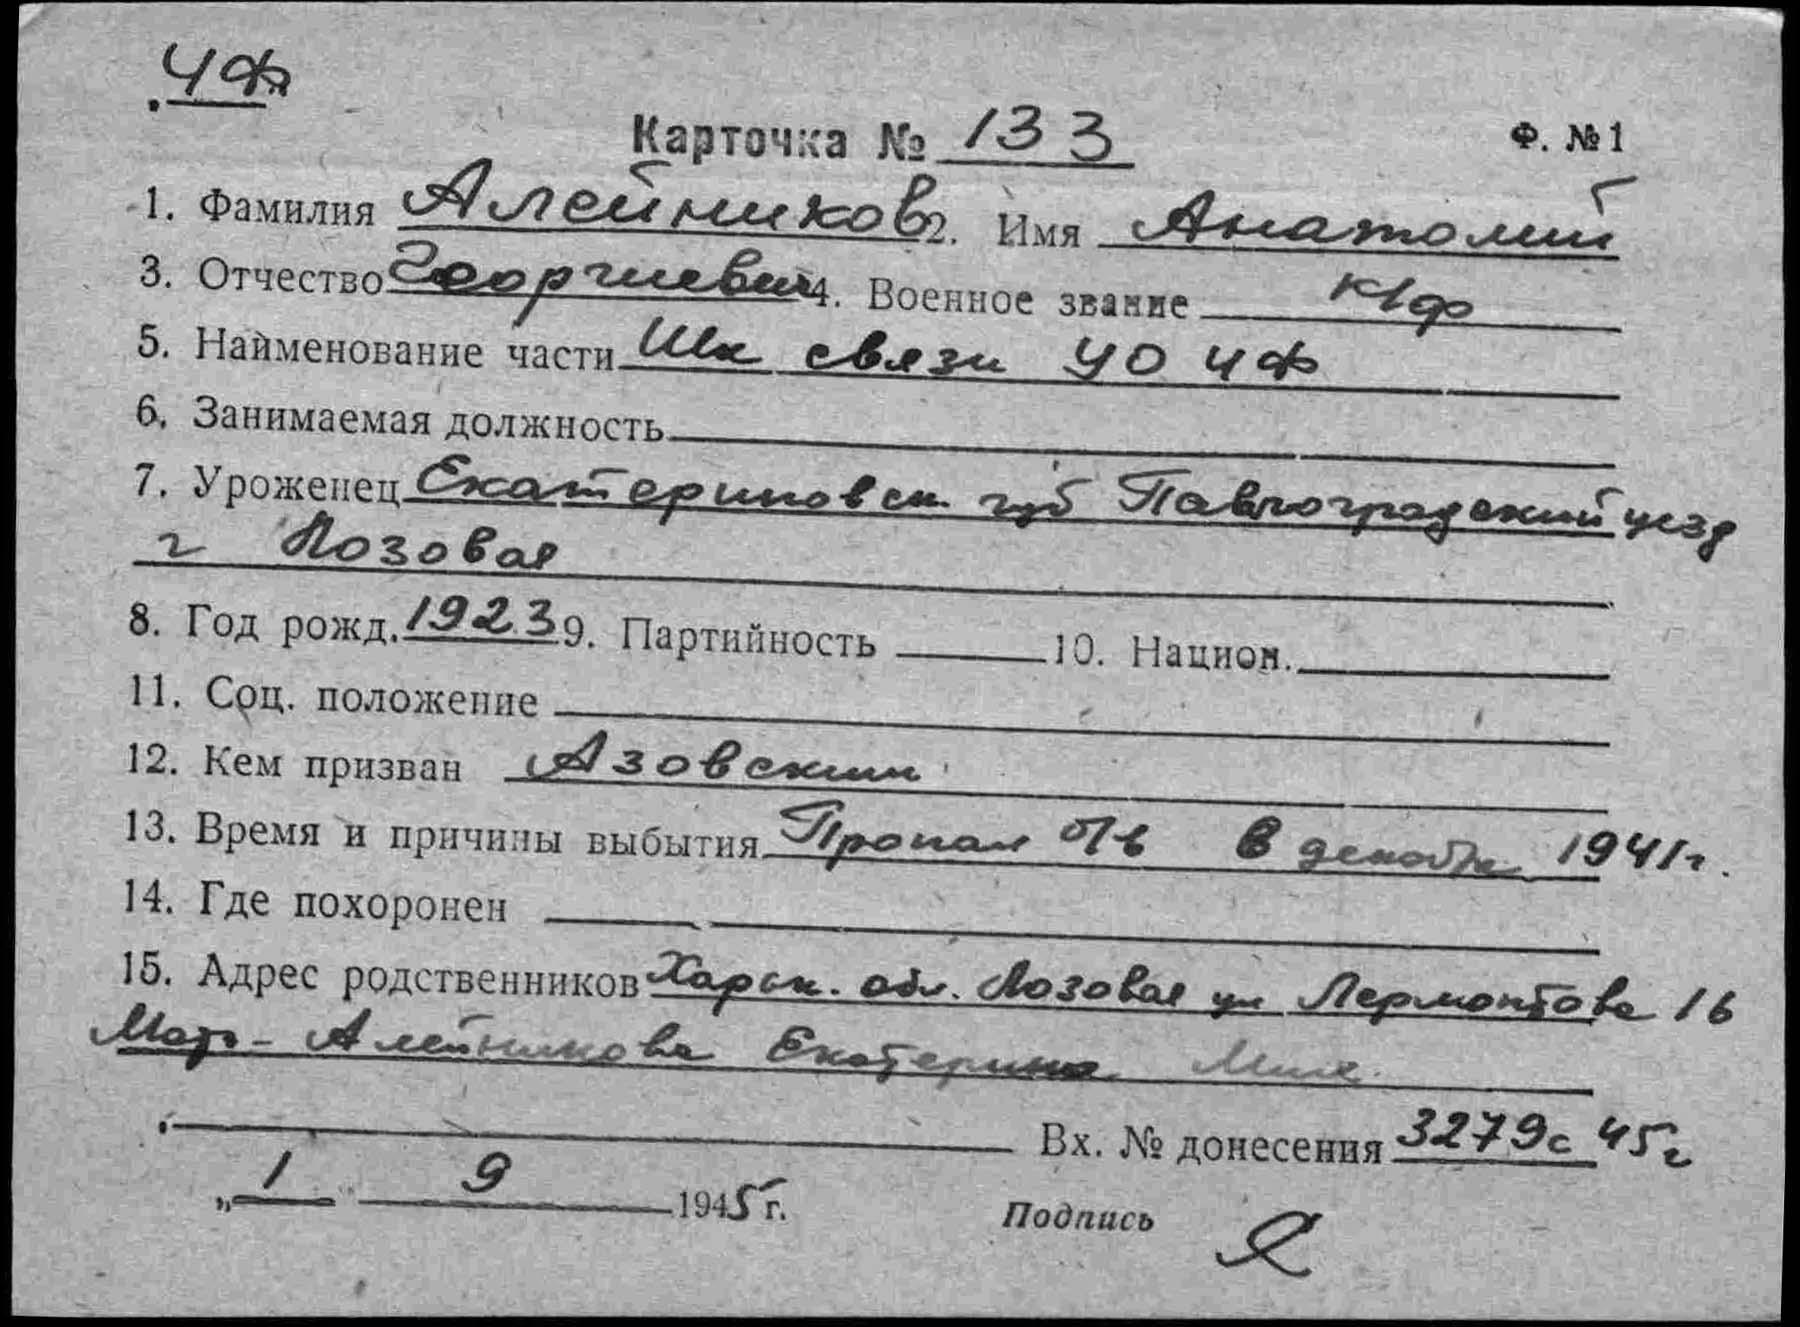 ЧФ
Карточка № 133 Ф. №1
1. Фамилия Алейников 2. Имя Анатолий
3. Отчество Георгиевич 4. Военное звание к/ф
5. Наименование части Шк связи УО ЧФ
6. Занимаемая должность
7. Уроженец Екатериновск. губ Павлоградский уезд
г Лозовая
8. Год рожд. 1923 9. Партийность 10. Национ.
11. Соц. положение
12. Кем призван Азовским
13. Время и причины выбытия Пропал б/в в декабре 1941г.
14. Где похоронен
15. Адрес родственников Харьк. обл. Лозовая ул Лермонтова 16
Мать - Алейникова Екатерина Мих.
Вх. № донесения 3279с 45г
„ 1 " 9 1945 г. Подпись